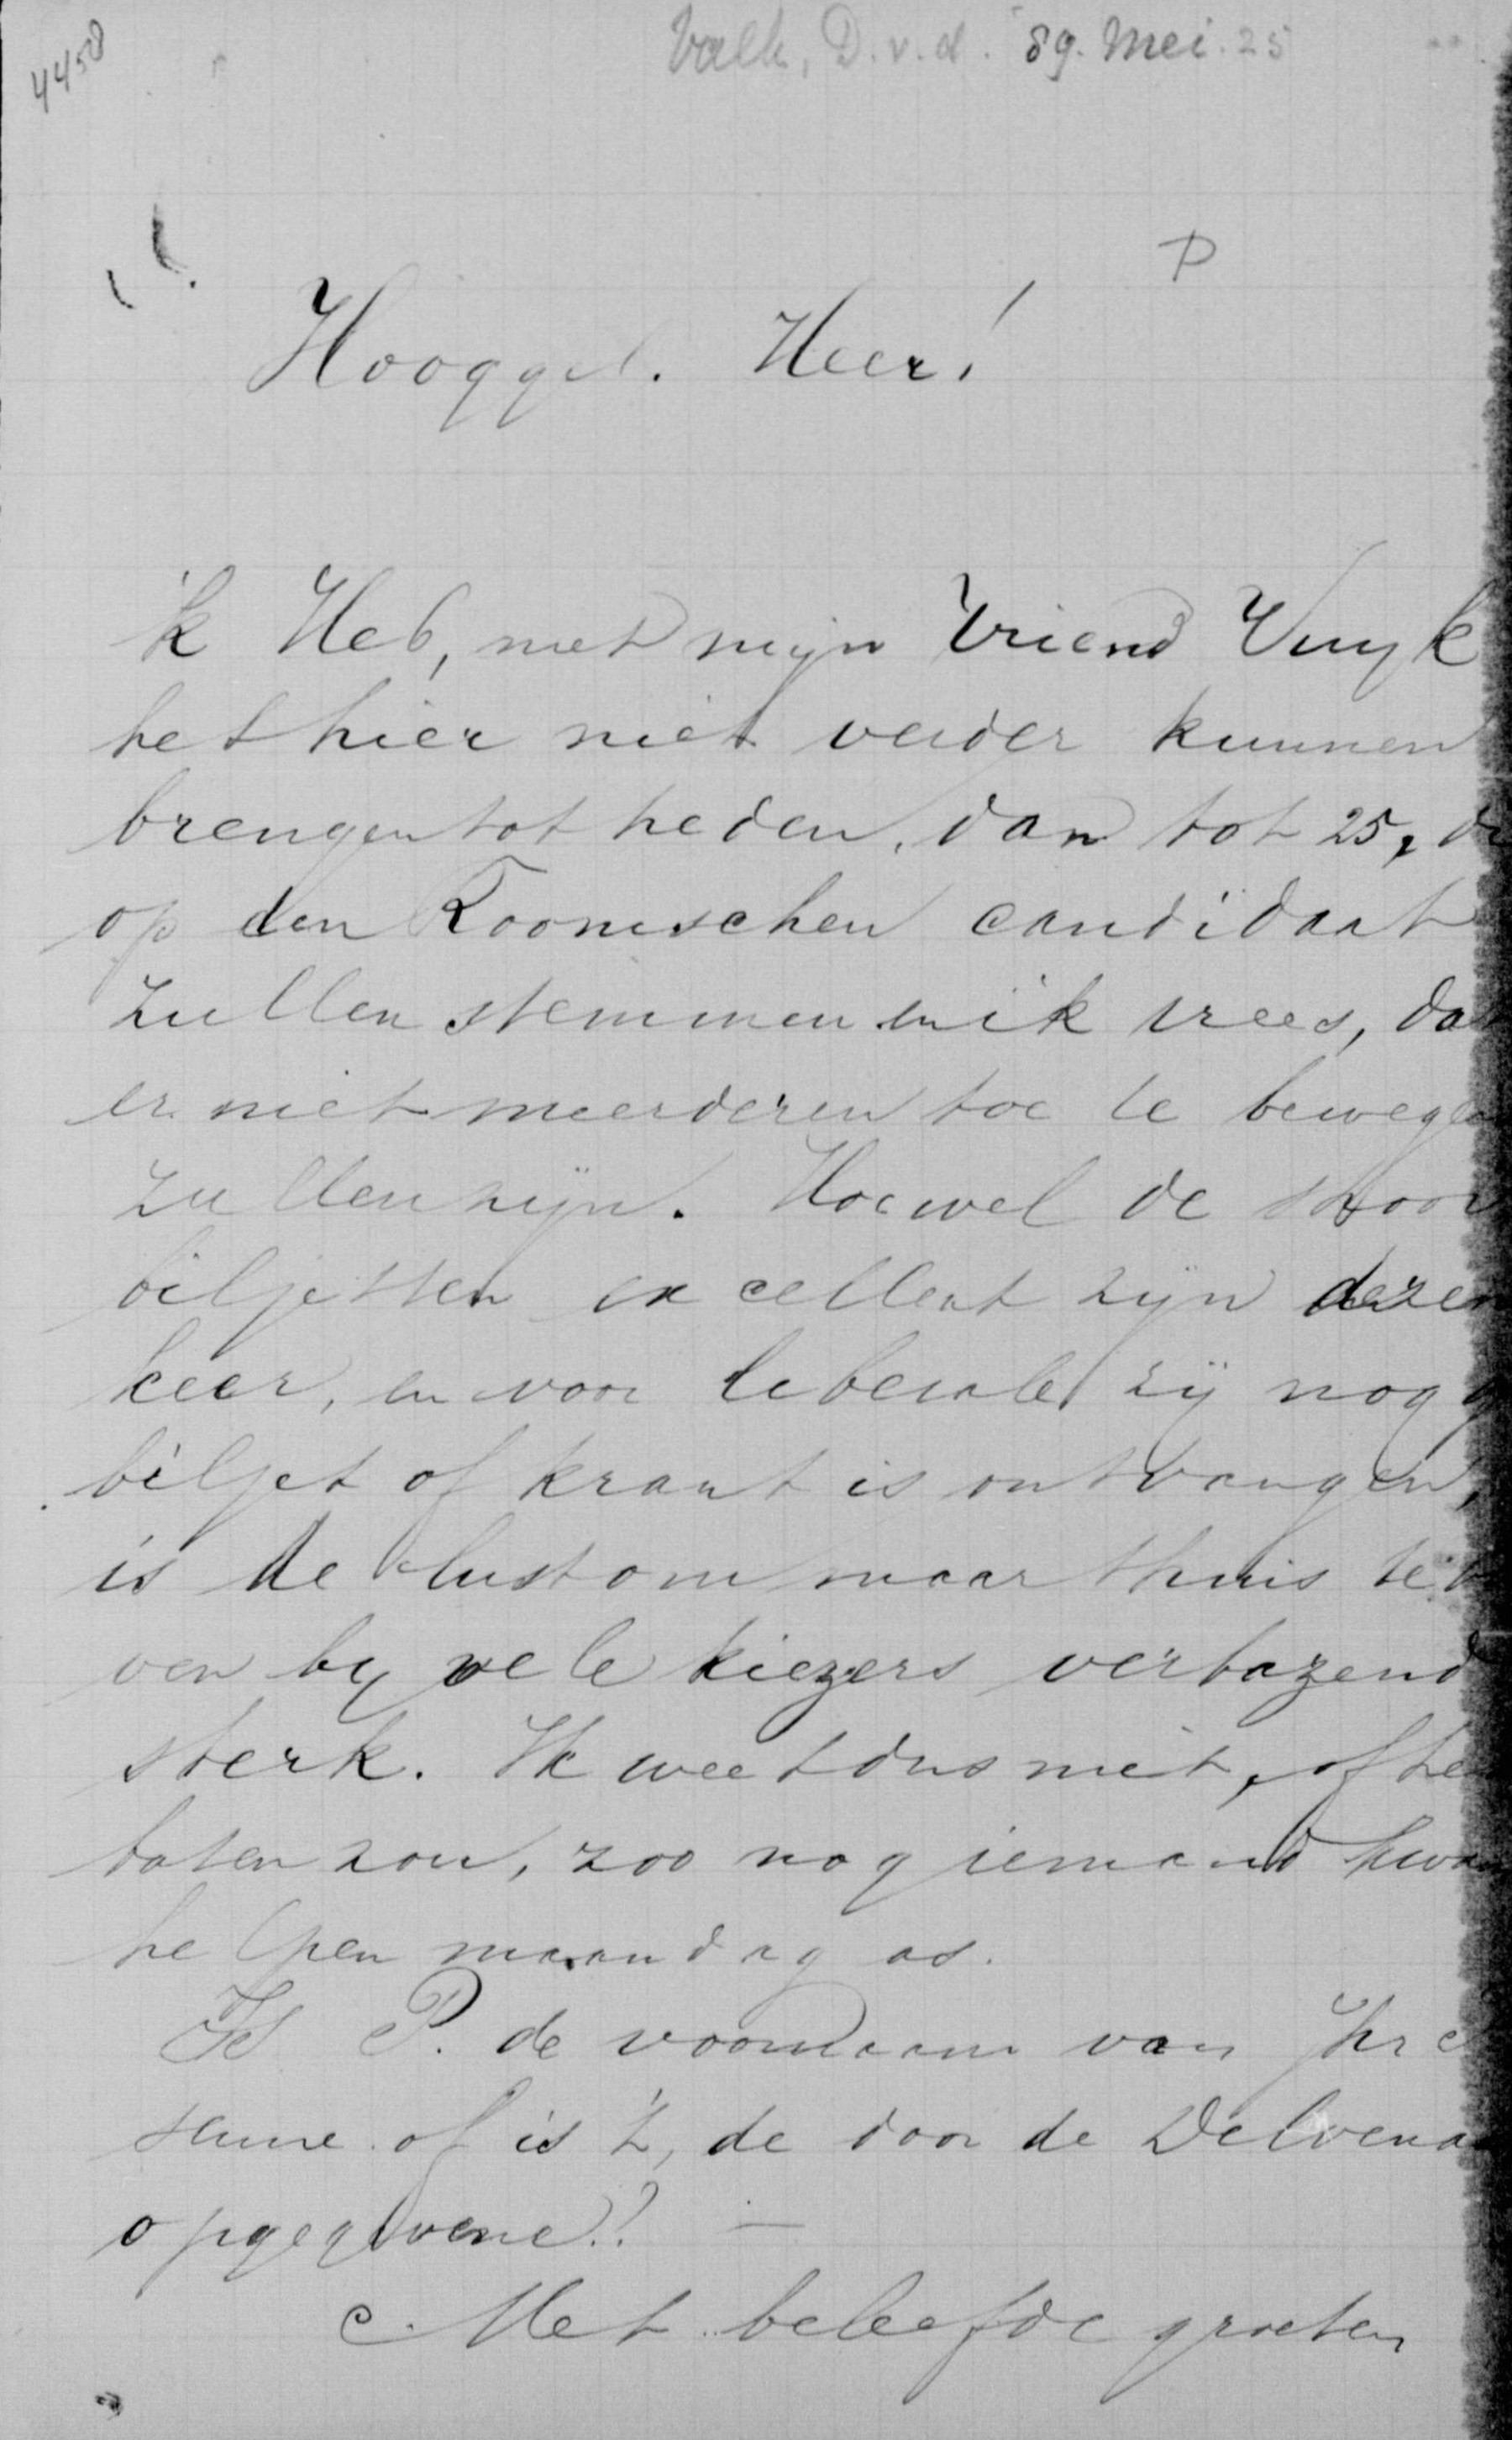 4458
Valk, D.v.d. 89. Mei. 25
P
Hooggel. Heer!
'k Heb, met mijn Vriend Vuyk
het hier niet verder kunnen
brengen tot heden, dan tot 25, di
op den Roomschen candidaat
zullen stemmen en ik vrees, da
er niet meerderen toe te bewege
zullen zijn. Hoewel de stroo
biljetten excellent zijn dezen
keer, en voor liberale zij nog g
biljet of krant is ontvangen,
is de lust om maar thuis te b
ven by vele kiezers verbazend
sterk. Ik weet dus niet, of he
baten zou, zoo nog iemand kwam
helpen maandag as.
Is P. de voornaam van Jhr
of is 't, de door de Delvena
opgegevene!?
Met beleefde groeten